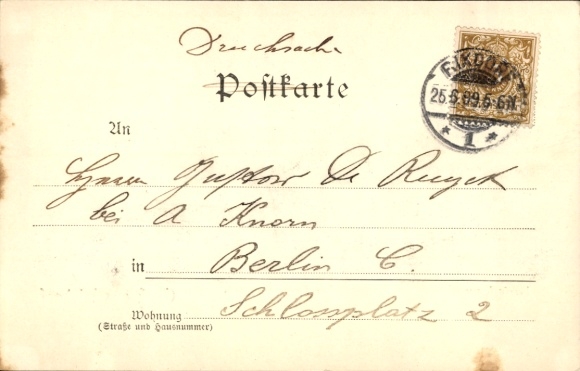 Drucksache
Postkarte
RIXDORF
25.6.99.5-6N.
* 1 *
An
Herrn Gustav De Ruyck
bei A Knorn
in Berlin C.
Wohnung Schlossplatz 2
(Straße und Hausnummer)